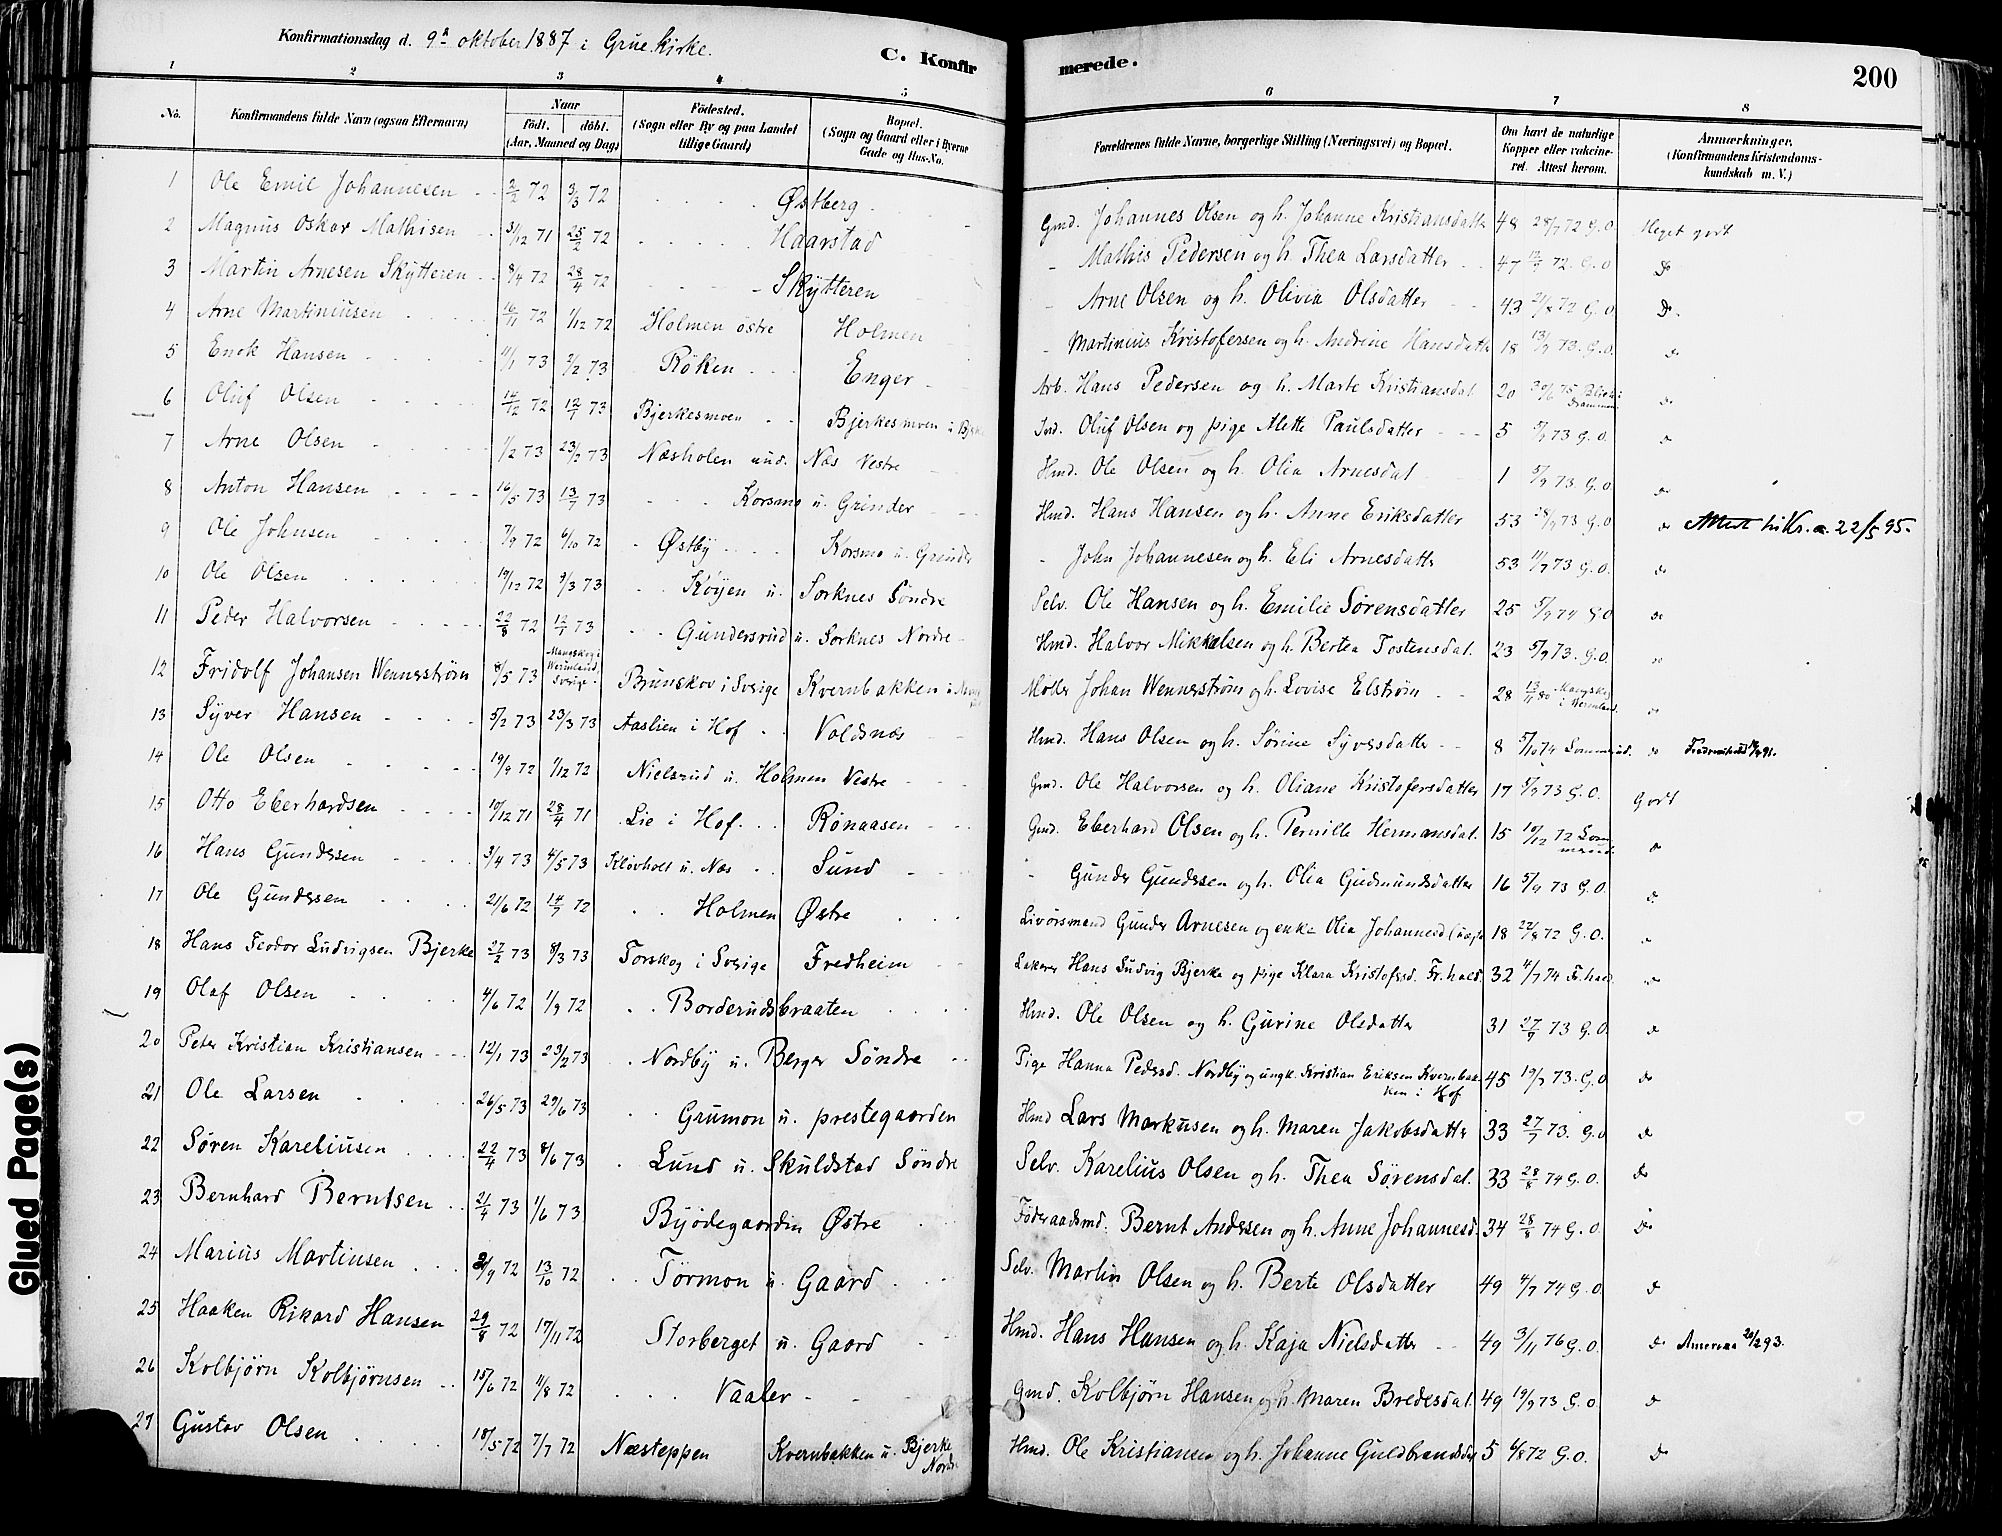 Konfirmationsdag d. 9de oktober 1887 i Grue kirke.
C. Konfirmerede.
200
1 2 3 4 5 6 7 8
No. Konfirmandens fulde Navn (ogsaa Efternavn) Naar födt. döbt. (Aar, Maaned og Dag) Födested. (Sogn eller By og paa Landet tillige Gaard) Bopæl. (Sogn og Gaard eller i Byerne Gade og Hus-No. Forældrenes fulde Navne, borgerlige Stilling (Næringsvei) og Bopæl. Om havt de naturlige Kopper eller vakcineret. Attest herom. Anmærkninger. (Konfirmandens Kristendomskundskab m. V.)
1 Ole Emil Johannesen 2/2 72 3/3 72 Østberg Gmd. Johannes Olsen og h. Johanne Kristiansdatter 48 28/7 72 G.O. Meget godt
2 Magnus Oskar Mathisen 31/12 71 25/2 72 Haarstad - Mathis Pedersen og h. Thea Larsdatter 47 72. G.O. Do
3 Martin Arnesen Skytteren 8/4 72 28/4 72 Skytteren - Arne Olsen og h. Olivia Olsdatter 43 72 G.O. Do
4 Arne Martiniusen 16/11 72 1/12 72 Holmen östre Holmen - Martinius Kristofersen og h. Andrine Hansdatter 18 13/9 73. G.O. Do
5 Enok Hansen 11/1 73 2/2 73 Röken Enger Arb. Hans Pedersen og h. Marte Kristiansdat 20 30/6 75 Drammen Do
6 Oluf Olsen 14/12 72 12/7 73 Bjerkesmoen Bjerkesmoen u. Bjerke Ind. Oluf Olsen og pige Mette Paulsdatter 5 73 G.O. Do
7 Arne Olsen 1/2 73 23/2 73 Næsholen und. Næs Vestre Hmd. Ole Olsen og h. Olia Arnesdat 1 5/9 73 G.O. Do
8 Anton Hansen 16/5 73 13/7 73 Korsmo u. Grinder Hmd. Hans Hansen og h. Anne Eriksdatter 53 28/9 73 G.O. Do Attest til Kr.a 22/5 95.
9 Ole Johnsen 7/9 72 6/10 72 Østby Korsmo u. Grinder - John Johannesen og h. Eli Arnesdatter 53 11/7 73 G.O. Do
10 Ole Olsen 19/12 72 9/3 73 Köyen u. Sorknes Söndre Selv. Ole Hansen og h. Emilie Sörensdatter 25 5/9 74 G.O Do
11 Peder Halvorsen 22/8 72 12/7 73 Gundersrud u. Sorknes Nordre Hmd. Halvor Mikkelsen og h. Bertea Tostensdat. 23 5/9 73. G.O. Do
12 Fridolf Johansen Wennerström 8/5 73 Mangskog i Wermland Sverige. Brunskov i Sverige Kvernbakken u. Möller Johan Wennerström og h. Lovise Elström 28 13/11 80 Mangskog i Wermland. Do
13 Syver Hansen 5/2 73 23/3 73 Aaslien i Hof Voldsnæs Hmd. Hans Olsen og h. Sörine Syversdatter 8 5/10 74 Sommerud. Do Fredrikshald 91.
14 Ole Olsen 19/9 72 1/12 72 Nielsrud u. Holmen Vestre Gmd. Ole Halvorsen og h. Oliane Kristofersdatter 17 5/9 73 G.O. Godt
15 Otto Eberhardsen 10/12 71 28/4 71 Lie i Hof. Rönaasen Gmd. Eberhard Olsen og h. Pernille Hermansdat. 15 10/12 72 Sommerud. Do
16 Hans Gundersen 3/4 73 4/5 73 Klövholt u. Næs Sund - Gunder Gundersen og h. Olia Gudmundsdatter 16 5/9 73 G.O. Do
17 Ole Gundersen 21/6 72 14/7 72 Holmen Østre Livörsmand Gunder Arnesen og enke Olia Johannesd. 18 22/8 72 G.O. Do
18 Hans Teodor Ludvigsen Bjerke 27/2 73 8/3 73 Torskog i Sverige Fredheim Lakerer Hans Ludvig Bjerke og pige Klara Kristofsd. Fr.hald. 32 4/7 74 F.hald. Do
19 Olaf Olsen 4/6 72 1/9 72 Borderudsbraaten Hmd. Ole Olsen og h. Gurine Olsdatter 31 27/9 73 G.O. Do
20 Peter Kristian Kristiansen 12/1 73 23/2 73 Nordby u. Berger Söndre Pige Hanna Pedersd. Nordby og ungk. Kristian Eriksen Kvernbakken i Hof 45 19/7 73. G.O Do
21 Ole Larsen 26/5 73 29/6 73 Grumon u. prestegaarden Hmd Lars Markusen og h. Maren Jakobsdatter 33 27/7 73. G.O Do
22 Sören Kareliusen 22/4 73 8/6 73 Lund u. Skuldstad Söndre Selv. Karelius Olsen og h. Thea Sörensdat. 33 28/8 74 G.O. Do
23 Bernhard Berntsen 21/4 73 1/6 73 Byödegaarden Østre Föderaadsmd. Bernt Andersen og h. Anne Johannesd. 34 28/8 74 G.O. Do
24 Marius Martinsen 72 13/10 72 Törmon u. Gaard Selv. Martin Olsen og h. Berte Olsdatter 49 4/7 74 G.O. Do
25 Haaken Rikard Hansen 29/8 72 17/11 72 Storberget u. Gaard Hmd. Hans Hansen og h. Kaja Nielsdatter 49 3/11 76 G.O. Do Amerika 20/2 93.
26 Kolbjörn Kolbjörnsen 15/6 72 11/8 72 Vaaler Gmd. Kolbjörn Hansen og h. Maren Bredesdat. 49 19/9 73 G.O. Do
27 Gustav Olsen 18/5 72 7/7 72 Næsteppen Kvernbakken u. Bjerke Nordre Hmd. Ole Kristiansen og h. Johanne Guldbrandsdat 5 6/8 72 G.O. Do
Glued Page(s)